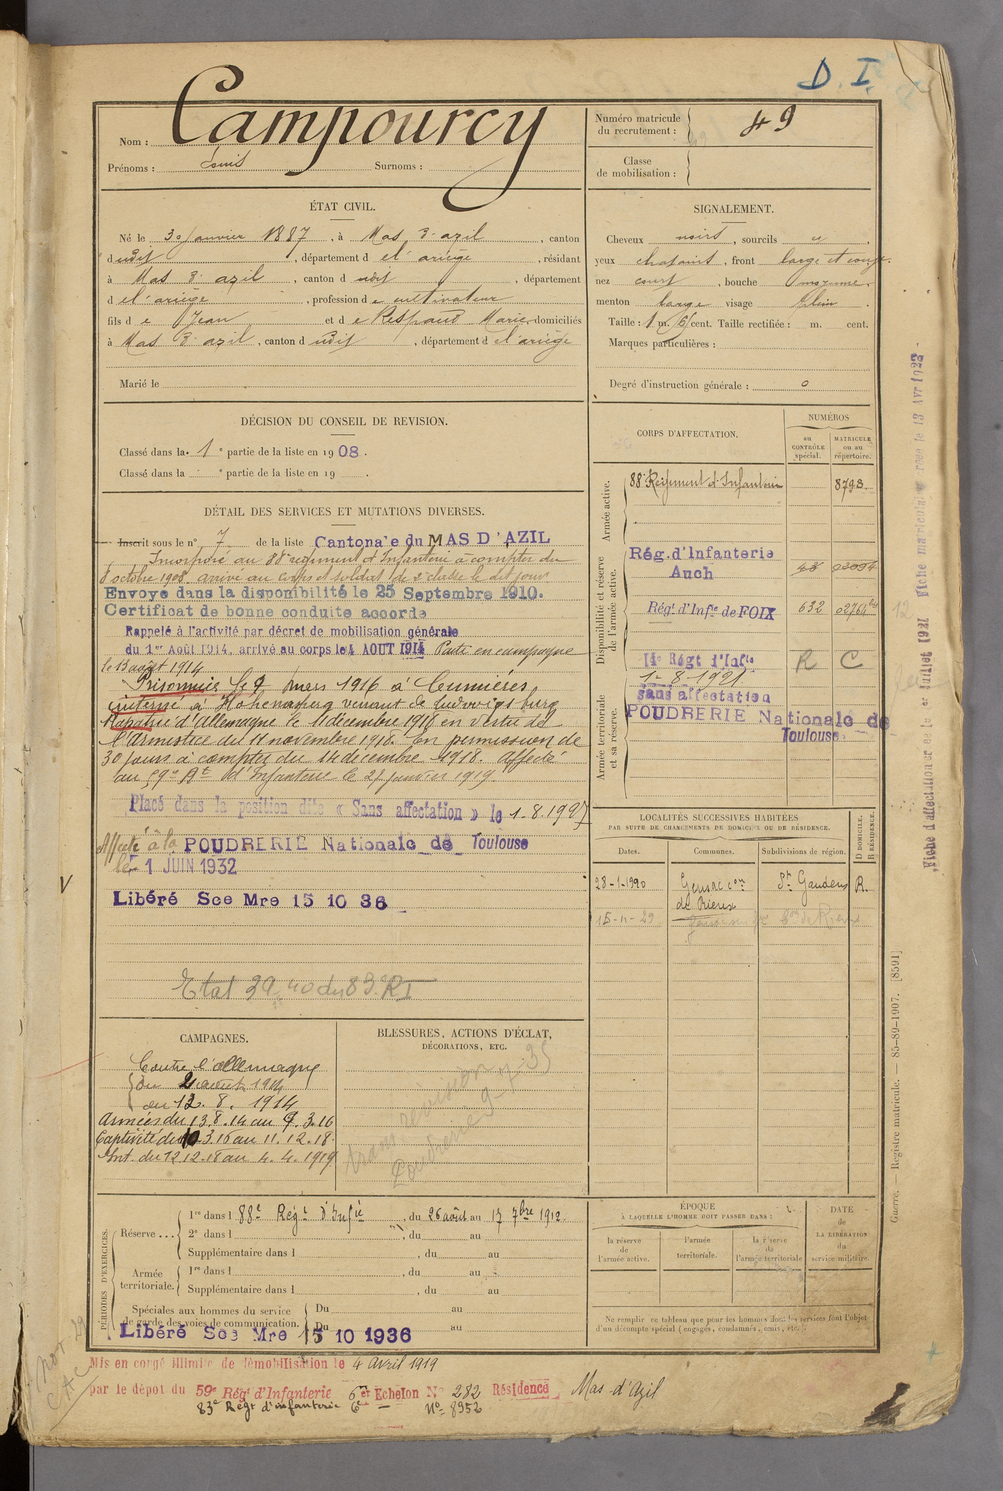 D. I.
Nom : Campourcy
Prénoms : Louis Surnoms :
Numéro matricule du recrutement : 49
Classe de mobilisation :
ÉTAT CIVIL.
Né le 30 janvier 1887, à Mas d'azil, canton
dudit, département de l'ariège, résidant
à Mas d'azil, canton dudit, département
de l'ariège, profession de cultivateur
fils de Jean et de Respaud Marie, domiciliés
à Mas d'azil, canton dudit, département de l'ariège
Marié le
SIGNALEMENT.
Cheveux noirs, sourcils
yeux chatains, front large et
nez court, bouche moyenne.
menton large visage plein
Taille : 1 m. 61 cent. Taille rectifiée : m. cent.
Marques particulières :
Degré d'instruction générale : 0
DÉCISION DU CONSEIL DE REVISION.
Classé dans la 1e partie de la liste en 1908.
Classé dans la e partie de la liste en 19 .
DÉTAIL DES SERVICES ET MUTATIONS DIVERSES.
Inscrit sous le n° 7 de la liste Cantonale du MAS D'AZIL
Incorporé au 88e régiment d'Infanterie à compter du
8 octobre 1908, arrivé au corps et soldat de 2e classe le dit jour
Envoyé dans la disponibilité le 25 Septembre 1910.
Certificat de bonne conduite accordé
Rappelé à l'activité par décret de mobilisation générale
du 1er Août 1914, arrivé au corps le 4 AOUT 1914 Parti en campagne
le 13 août 1914
Prisonnier le 9 mars 1916 à Cumières
interné à Hohenasperg venant de Ludwigsburg
Rapatrié d'Allemagne le 11 décembre 1918 en vertu de
l'Armistice du 11 novembre 1918. En permission de
30 jours à compter du 14 décembre 1918. Affecté
au 59e Rt d'Infanterie le 27 janvier 1919.
Placé dans la position dite « Sans affectation » le 1-8-1927
Affecté à la POUDRERIE Nationale de Toulouse
le 1 JUIN 1932
V
Libéré Sce Mre 15 10 36
Etat 39-40 du 83e RI
CORPS D'AFFECTATION.
NUMÉROS
au CONTRÔLE spécial.
MATRICULE ou au répertoire.
Armée active.
88e Régiment d'Infanterie 8793
Disponibilité et réserve de l'armée active.
Rég. d'Infanterie
Auch
Régt d'Infie de FOIX 632
14e Régt d'Infie R C
1-8-1921
Armée territoriale et sa réserve.
sans affectation
POUDRERIE Nationale de
Toulouse.
LOCALITÉS SUCCESSIVES HABITÉES
PAR SUITE DE CHANGEMENTS DE DOMICILE OU DE RÉSIDENCE.
Dates. Communes. Subdivisions de région. D DOMICILE. R RÉSIDENCE.
St Gaudens R.
de Rieux
15-11-29
CAMPAGNES.
Contre l'allemagne
du 4 août 1914
au 12. 8. 1914
Armées du 13.8.14 au 9.3.16
Captivité du 10.3.16 au 11.12.18
Int. du 12.12.18 au 4.4.1919
BLESSURES, ACTIONS D'ÉCLAT,
DÉCORATIONS, ETC.
PÉRIODES D'EXERCICES.
Réserve...
1re dans l 88e Régt d'Infie, du 26 août au 17 7bre 1912.
2e dans l , du au
Supplémentaire dans l , du au
Armée territoriale.
1re dans l , du au
Supplémentaire dans l , du au
Spéciales aux hommes du service de garde des voies de communication.
Du au
Du au
Libéré Sce Mre 15 10 1936
ÉPOQUE
À LAQUELLE L'HOMME DOIT PASSER DANS :
la réserve de l'armée active.
l'armée territoriale.
la réserve de l'armée territoriale
DATE de LA LIBÉRATION du service militaire.
Ne remplir ce tableau que pour les hommes dont les services font l'objet
d'un décompte spécial (engagés, condamnés, omis, etc.).
Mis en congé illimité de démobilisation le 4 avril 1919
par le dépôt du 59e Régt d'Infanterie 6e Echelon N° 282 Résidence Mas d'Azil
83e Régt d'infanterie 6e — N° 8952
Guerre. — Registre matricule. — 85-89-1907. [8591]